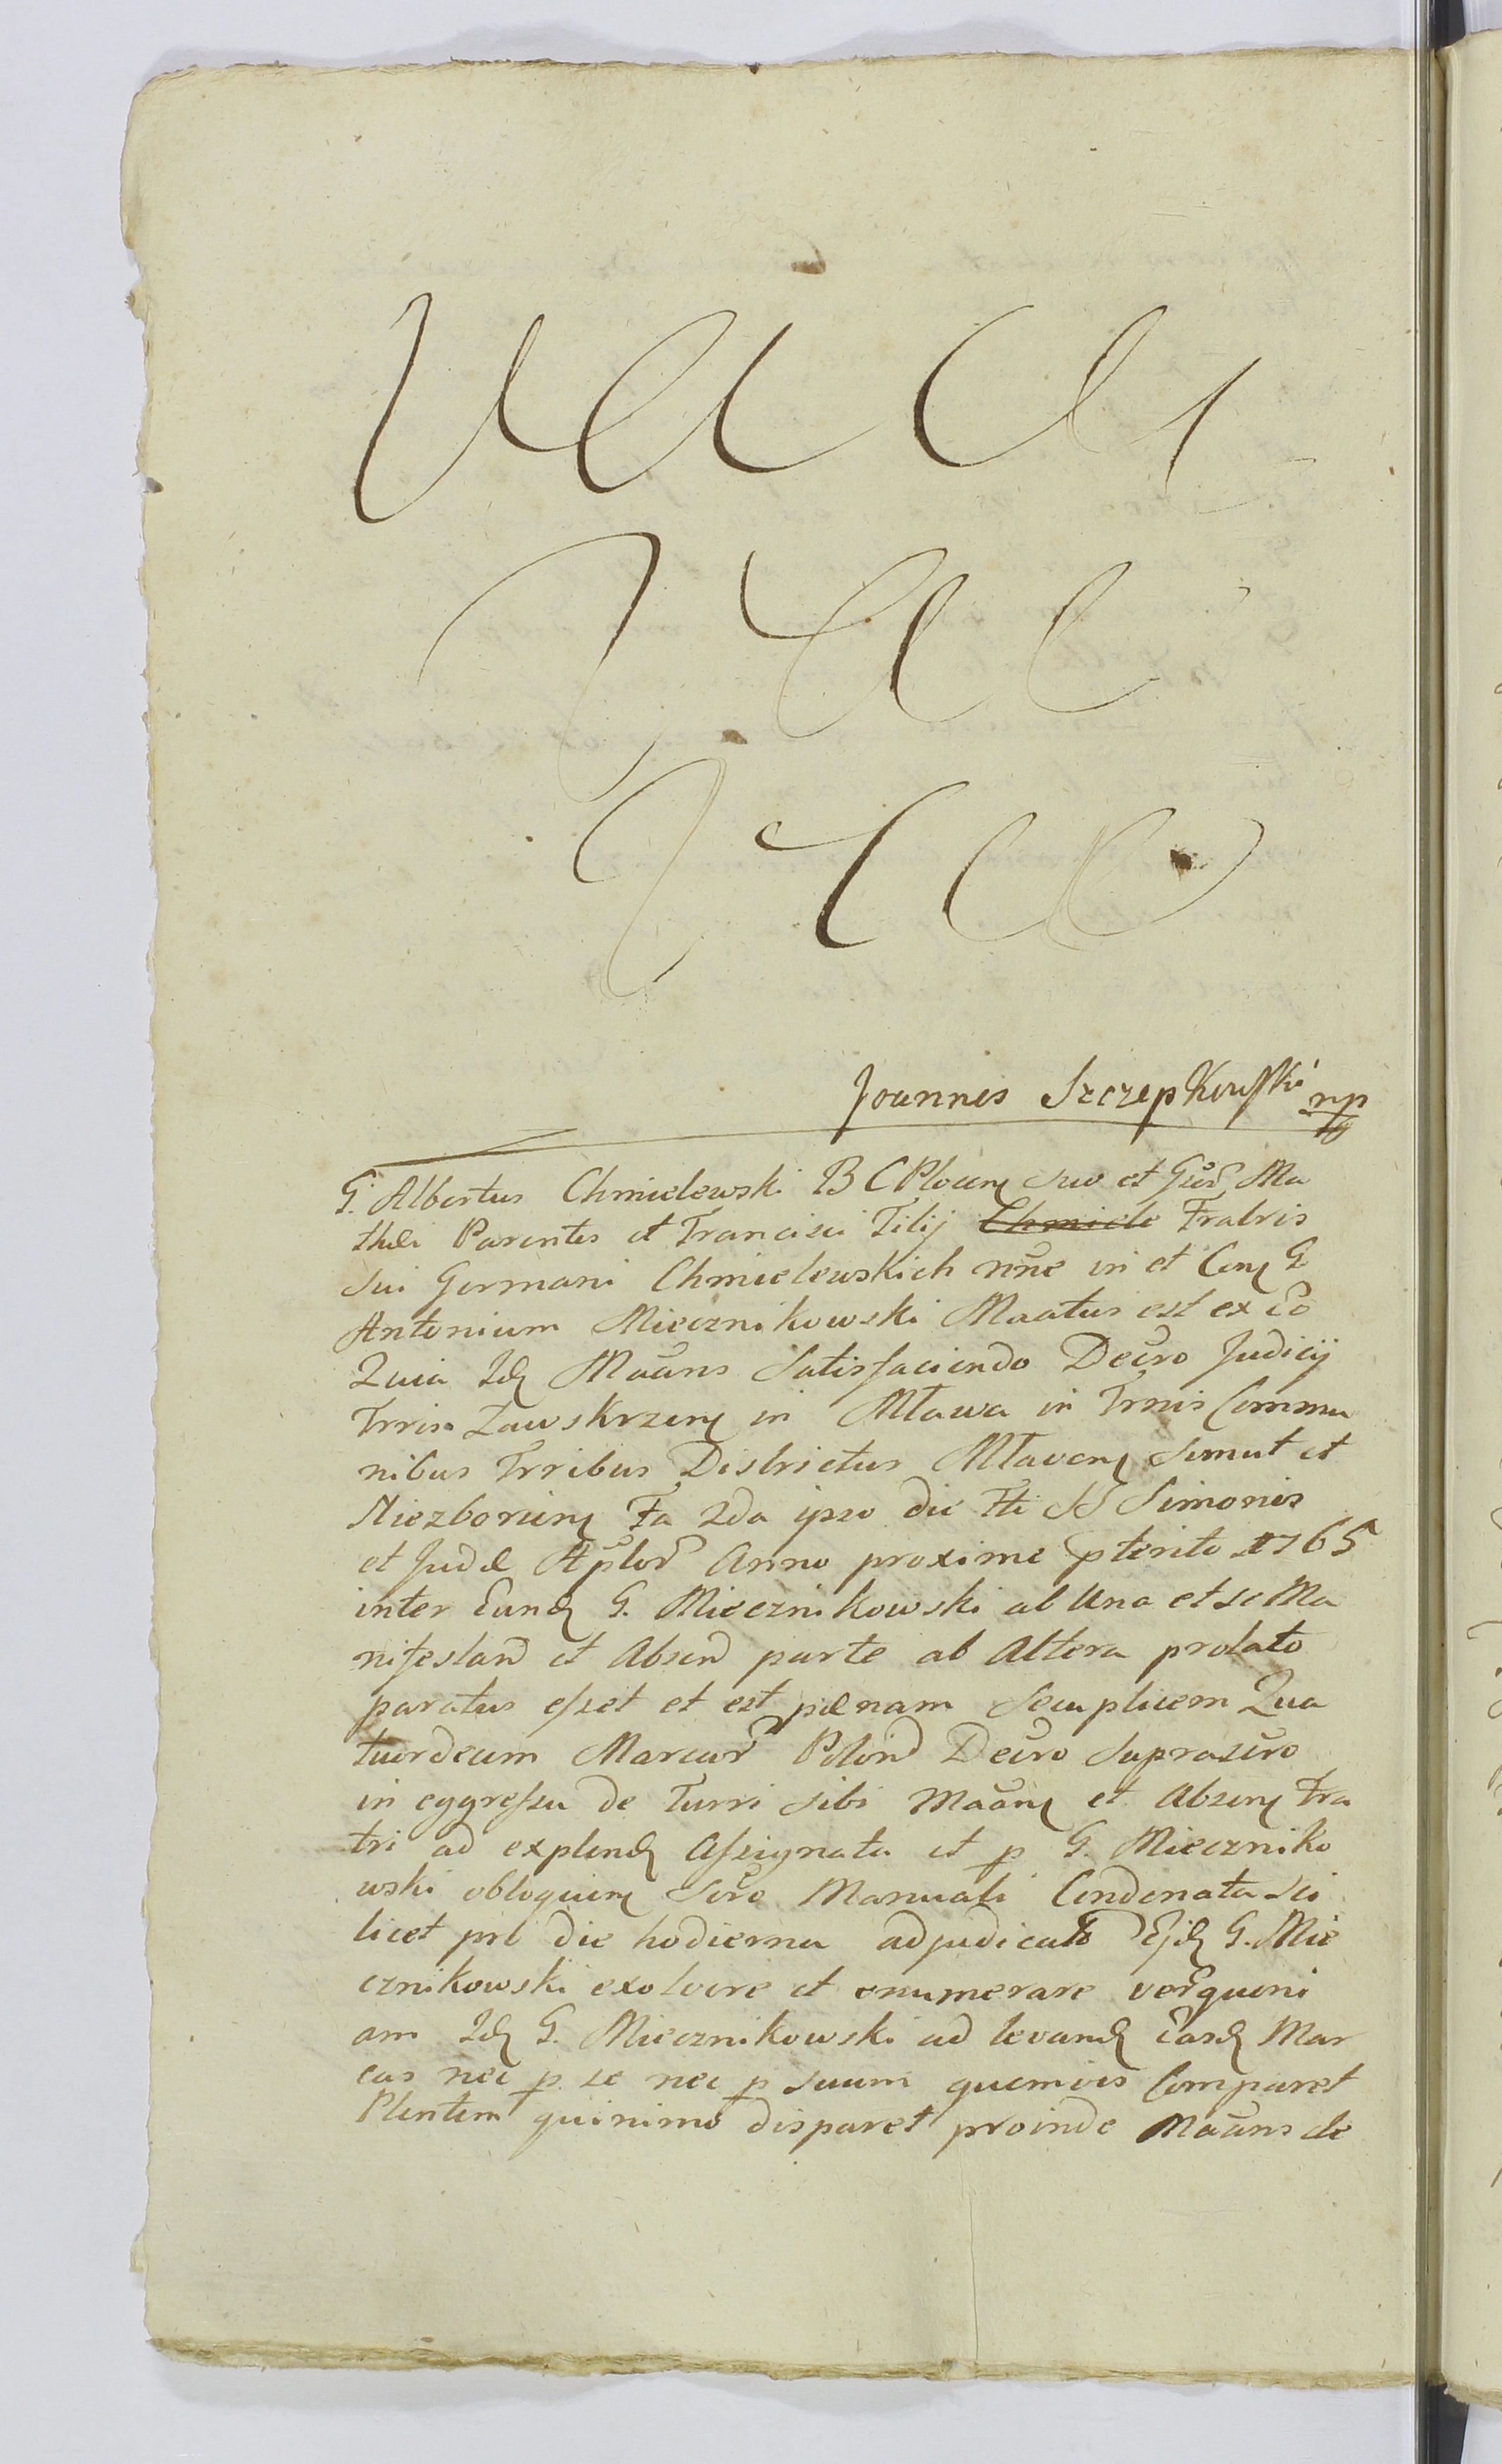 Joannes Szczepkowski mp
G. Albertus Chmielewski B C Plocen suo et Gnör Ma
thei Parentis et Francisci Filij Chmiele Fratris
sui Germani Chmielewskich nõie in et Con G
Antonium Miecznikowski Maatus est ex eo
Quia Idq Maãns Satisfaciendo Decro Judicij
Trris Zawskrzen in Mława in Trmis Commu
nibus Trribus Districtus Mlaven simul et
Niezborien Fa 2da ipso die Fti SS Simonis
et Judæ Aplor Anno proxime pterito 1765
inter Eundq G. Miecznikowski ab Una et se Ma
nifestand et Absend parte ab Altera prolato
paratus esset et est pænam Scuplicem Qua
tuordecim Marcar Polond Decro Suprascro
in eggressu de Turri sibi Maãn et Absen Fra
tri ad explendq Assignata et p G. Mieczniko
wski obloquen Scro Manuali Condenata sci
licet prl die hodierna adjudicato Ejdq G. Mie
cznikowski exolvere et enumerare verquoni
am Idq G. Miecznikowski ad levandq easdq Mar
cas nec p se nec p suum quemvis Comparet
Plentem quinimo disparet proinde Maãns de